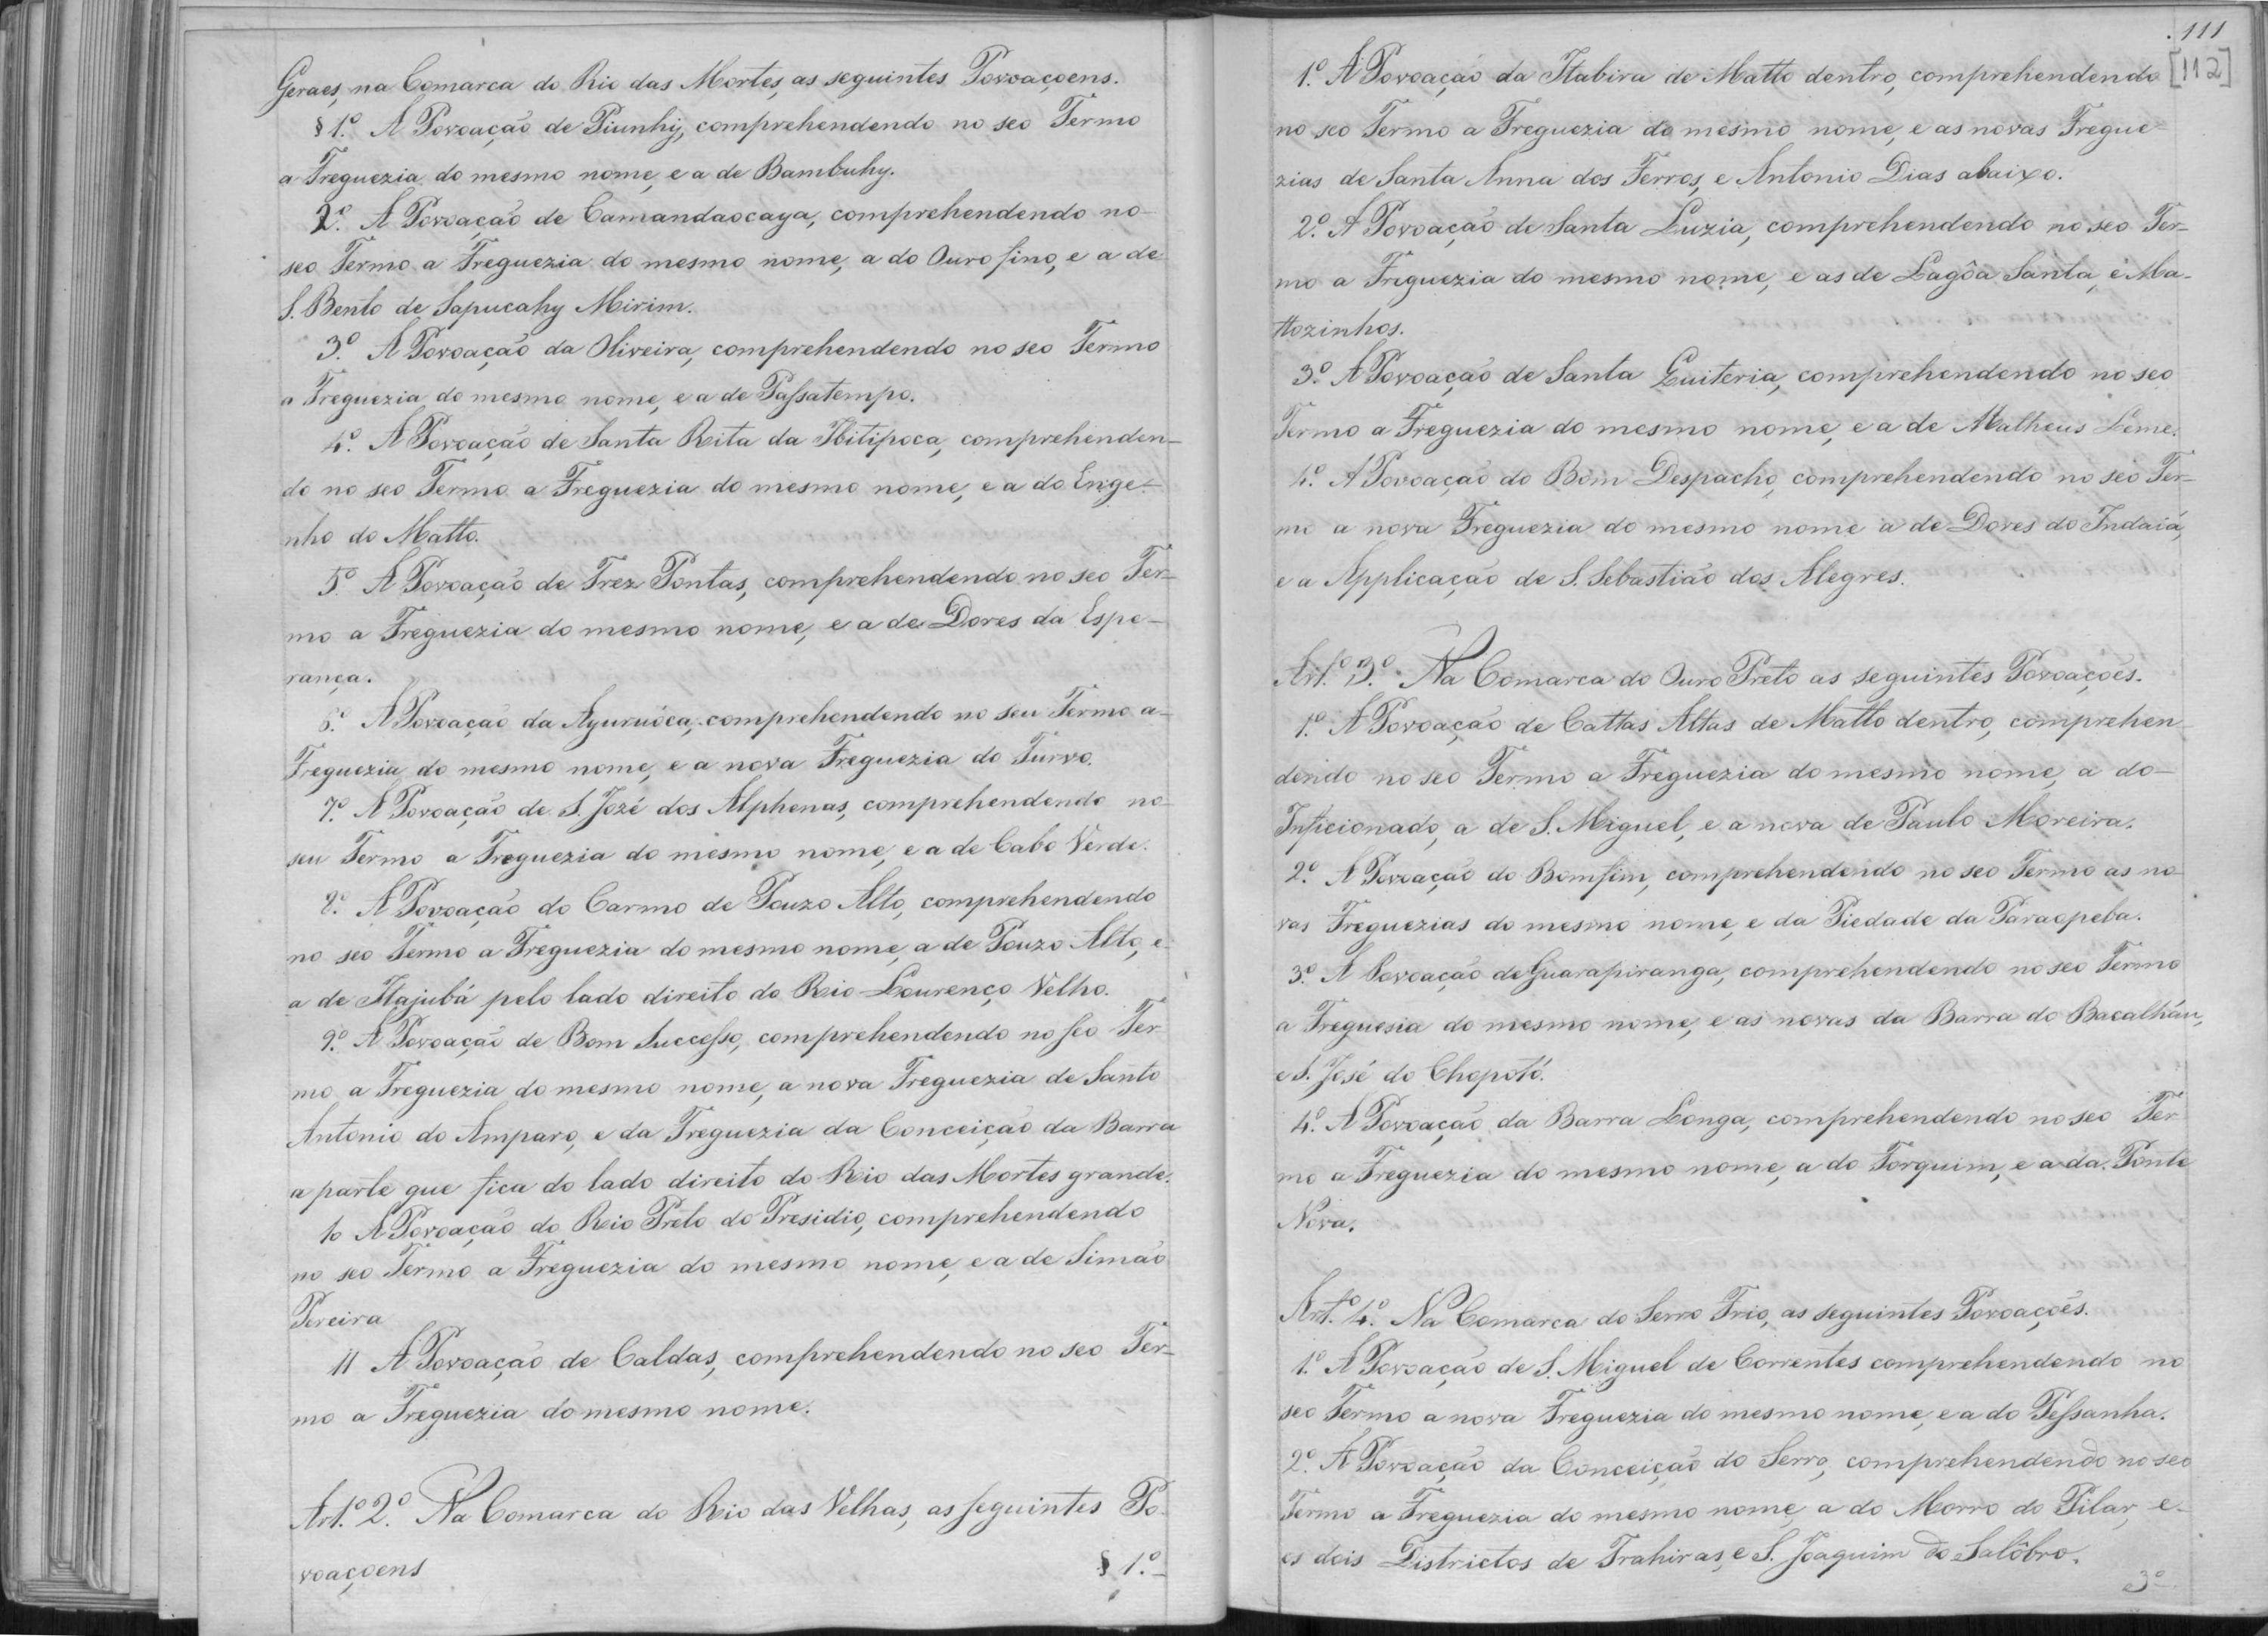 Geraes, na Comarca do Rio das Mortes, as seguintes Povoaçoens.
§ 1.º A Povoação de Piunhÿ, comprehendendo no seo Termo
a Freguezia do mesmo nome, e a de Bambuhy.
2.º A Povoação de Camandaocaya, comprehendendo no
seo Termo a Freguezia do mesmo nome, a do Ouro fino, e a de
S. Bento de Sapucahy Mirim.
3.º A Povoação da Oliveira, comprehendendo no seo Termo
a Freguezia do mesmo nome, e a de Passatempo.
4.º A Povoação de Santa Rita da Ibitipoca, comprehenden-
do no seo Termo a Freguezia do mesmo nome, e a do Enge-
nho do Matto.
5.º A Povoação de Trez Pontas, comprehendendo no seo Ter-
mo a Freguezia do mesmo nome, e a de Dores da Espe-
rança.
6.º A Povoação da Ayuruóca, comprehendendo no seu Termo a
Freguezia do mesmo nome, e a nova Freguezia do Turvo.
7.º A Povoação de S. Jozé dos Alphenas, comprehendendo no
seu Termo a Freguezia do mesmo nome, e a de Cabo Verde.
8.º A Povoação do Carmo de Pouzo Alto, comprehendendo
no seo Termo a Freguezia do mesmo nome, a de Pouzo Alto, e
a de Itajubá pelo lado direito do Rio Lourenço Velho.
9.º A Povoação de Bom Successo, comprehendendo no seo Ter
mo a Freguezia do mesmo nome, a nova Freguezia de Santo
Antonio do Amparo, e da Freguezia da Conceição da Barra
a parte que fica do lado direito do Rio das Mortes grande.
10 A Povoação do Rio Preto do Presidio, comprehendendo
no seo Termo a Freguezia do mesmo nome, e a de Simão
Pereira
11 A Povoação de Caldas, comprehendendo no seo Ter-
mo a Freguezia do mesmo nome.
Art.º 2.º Na Comarca do Rio das Velhas, as seguintes Po-
voaçoens
§ 1.º
111
[112]
1.º A Povoação da Itabira de Matto dentro, comprehendendo
no seo Termo a Freguezia do mesmo nome, e as novas Fregue-
zias de Santa Anna dos Ferros, e Antonio Dias abaixo.
2.º A Povoação de Santa Luzia, comprehendendo no seo Ter-
mo a Freguezia do mesmo nome, e as de Lagôa Santa, e Ma-
ttozinhos.
3.º A Povoação de Santa Quiteria, comprehendendo no seo
Termo a Freguezia do mesmo nome, e a de Matheus Leme.
4.º A Povoação do Bom Despacho, comprehendendo no seo Ter-
mo a nova Freguezia do mesmo nome a de Dores do Indaiá,
e a Applicação de S. Sebastião dos Alegres.
Art.º 3.º Na Comarca do Ouro Preto as seguintes Povoações.
1.º A Povoação de Cattas Altas de Matto dentro, comprehen
dendo no seo Termo a Freguezia do mesmo nome, a do
Inficionado, a de S. Miguel, e a nova de Paulo Moreira.
2.º A Povoação do Bomfim, comprehendendo no seo Termo as no-
vas Freguezias do mesmo nome, e da Piedade da Paraopeba.
3.º A Povoação de Guarapiranga, comprehendendo no seo Termo
a Freguesia do mesmo nome, e as novas da Barra do Bacalháu,
e S. José do Chopotó.
4.º A Povoação da Barra Longa, comprehendendo no seo Ter
mo a Freguezia do mesmo nome, a do Forquim, e a da Ponte
Nova.
Art.º 4.º Na Comarca do Serro Frio, as seguintes Povoações.
1.º A Povoação de S. Miguel de Correntes comprehendendo no
seo Termo a nova Freguezia do mesmo nome, e a do Pessanha.
2.º A Povoação da Conceição do Serro, comprehendendo no seo
Termo a Freguezia do mesmo nome, a do Morro do Pilar, e
os dois Districtos de Trahiras, e S. Joaquim do Salôbro.
3.º